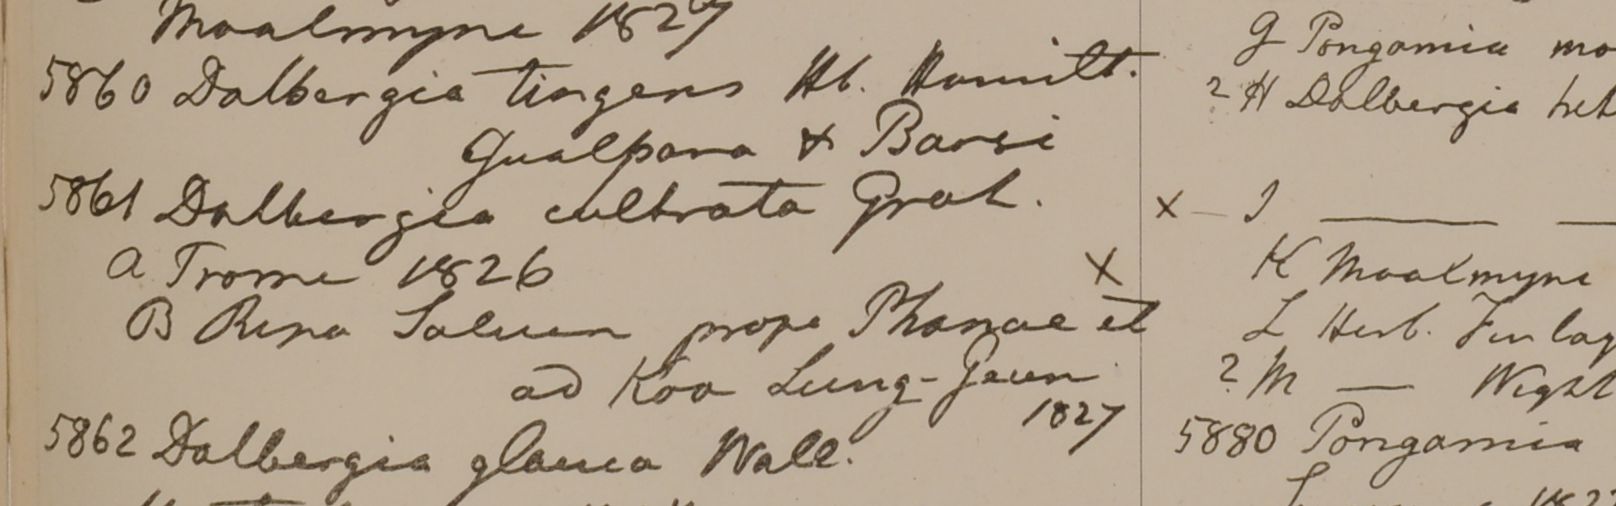 Moalmyne 1827
5860 Dalbergia tingens Hb. Hamilt.
Gualpara & Barsi
5861 Dalbergia cultrata Grah.
A Prome 1826
X
B Ripa Saluen prope Phanoe et
ad Koa Lung-Geun
1827
5862 Dalbergia glauca Wall.
G Pongamia mo
? H Dalbergia het
X — I — —
K Moalmyne
L Herb. Finlay
? M — Wight
5880 Pongamia